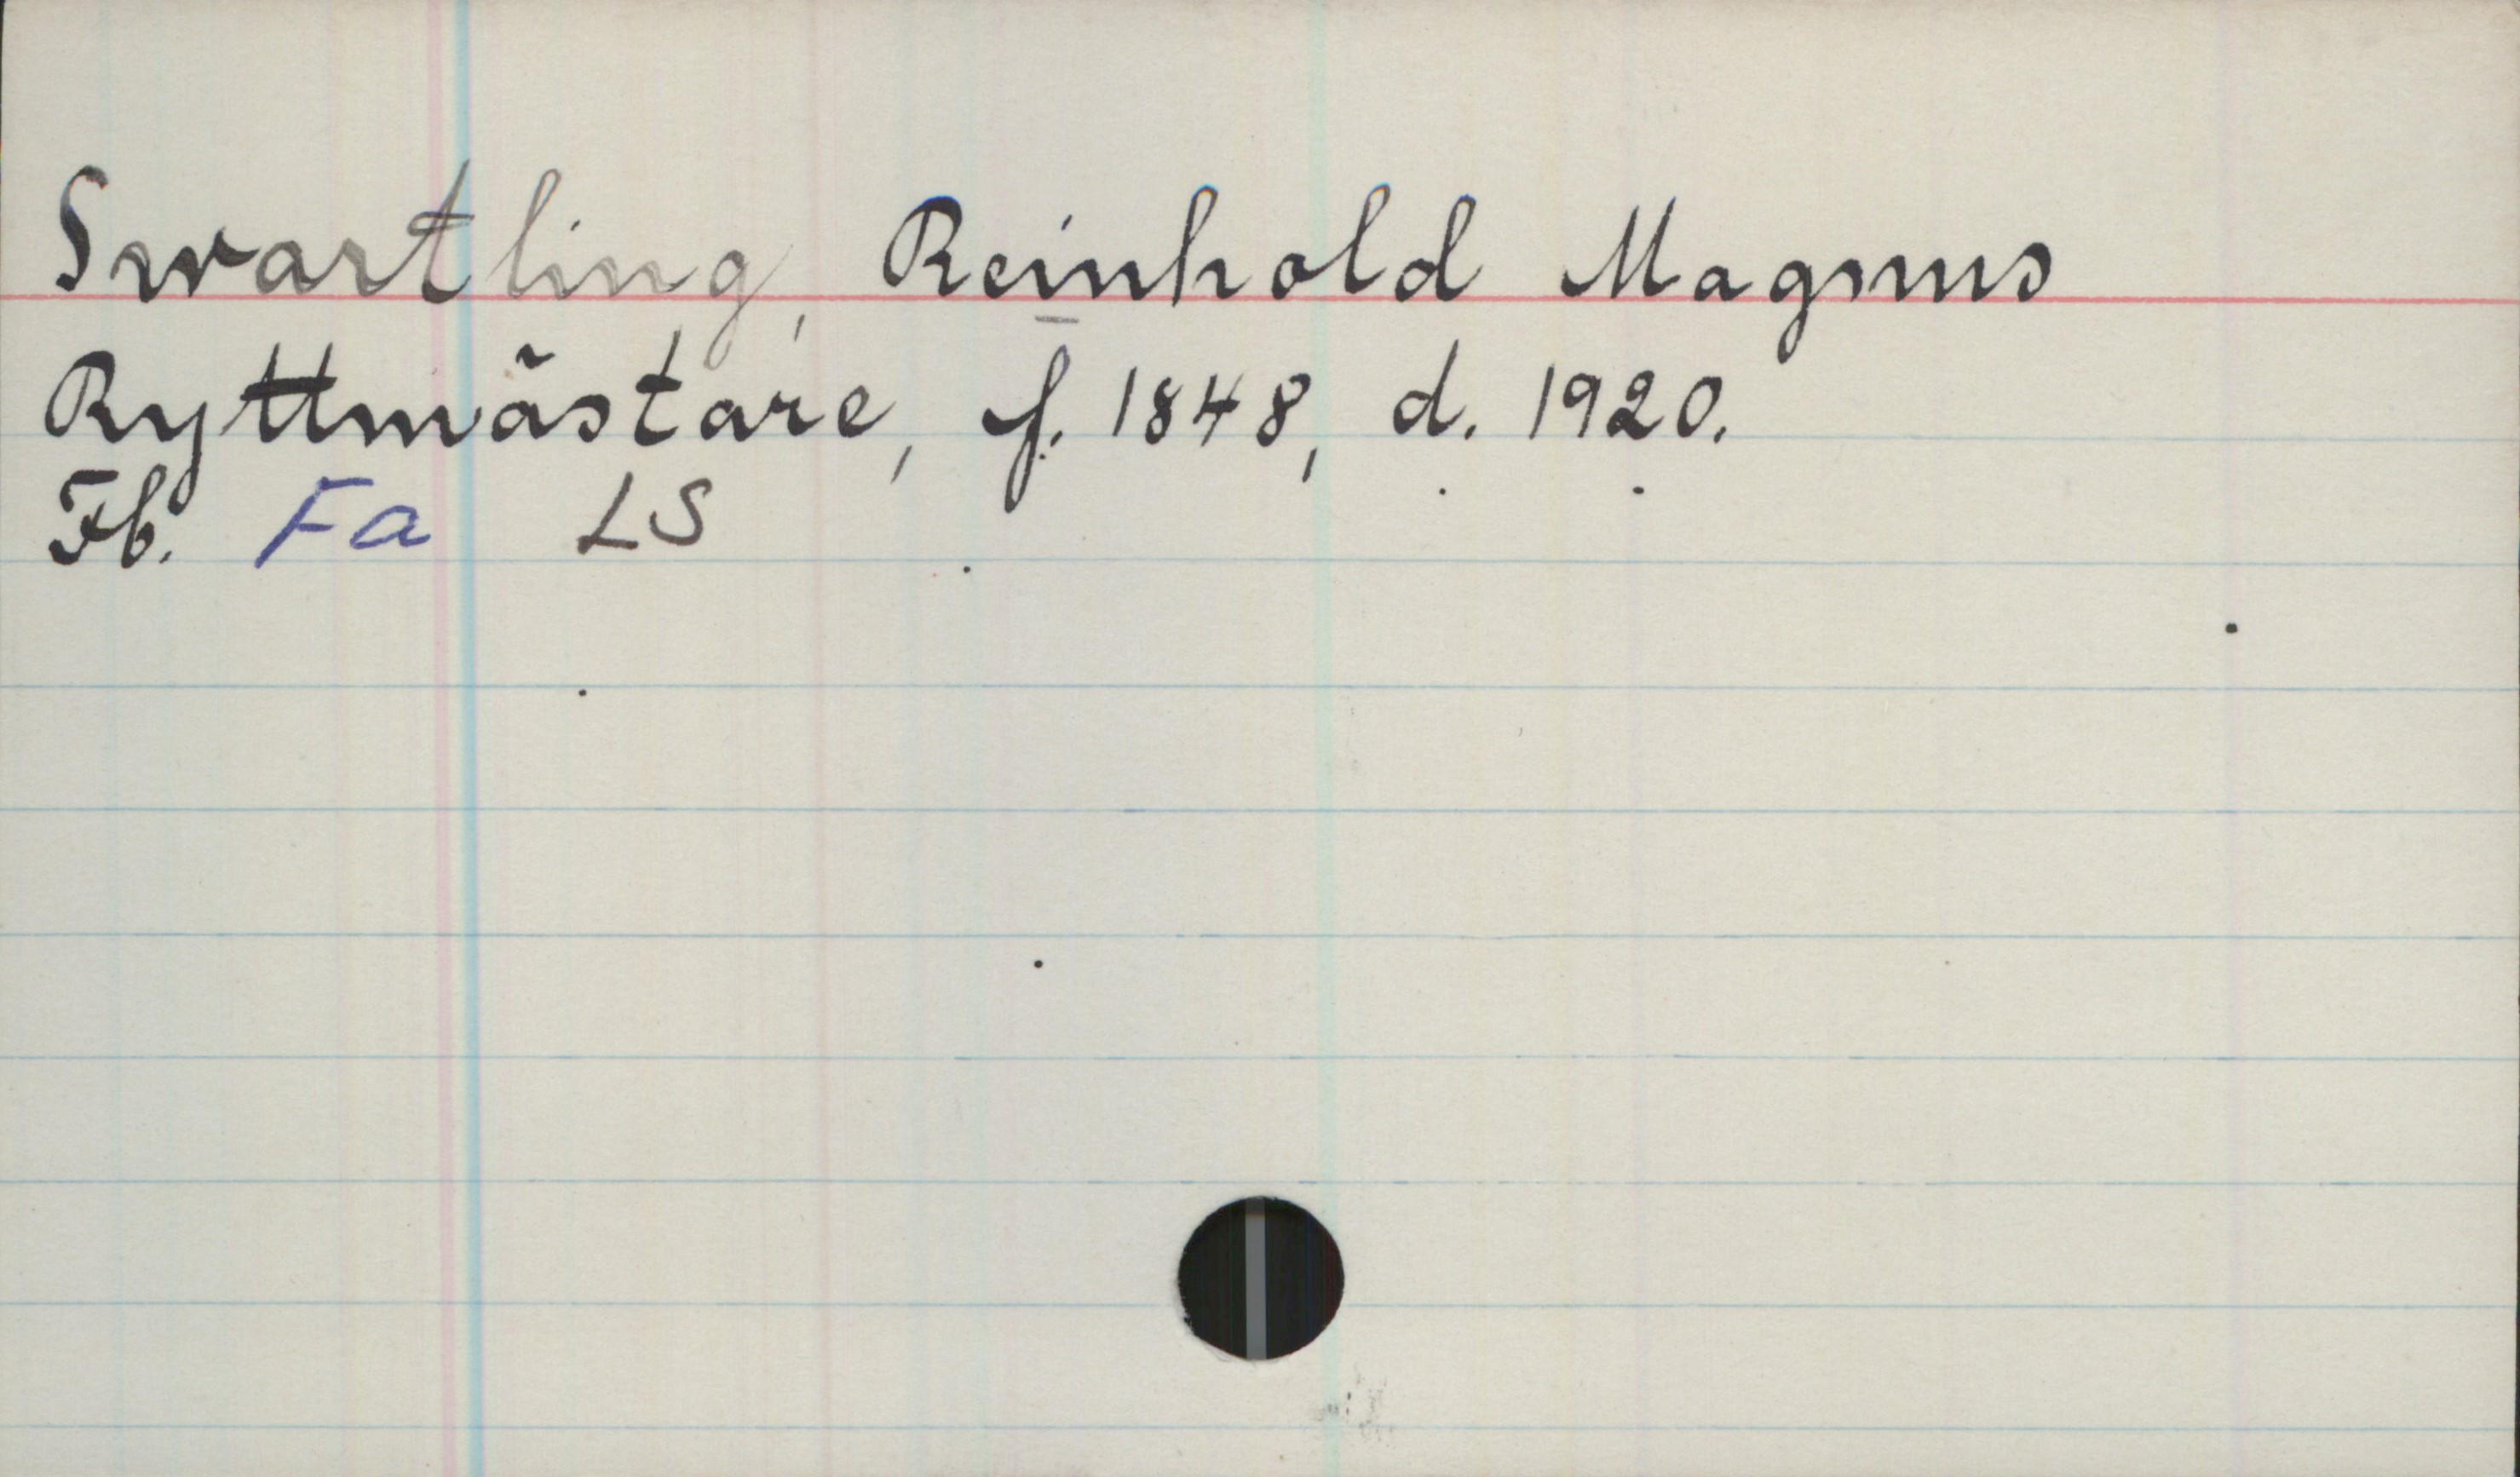 Swartling, Reinhold Magnus
Ryttmästare, f. 1848, d. 1920.
Fb. Fa LS